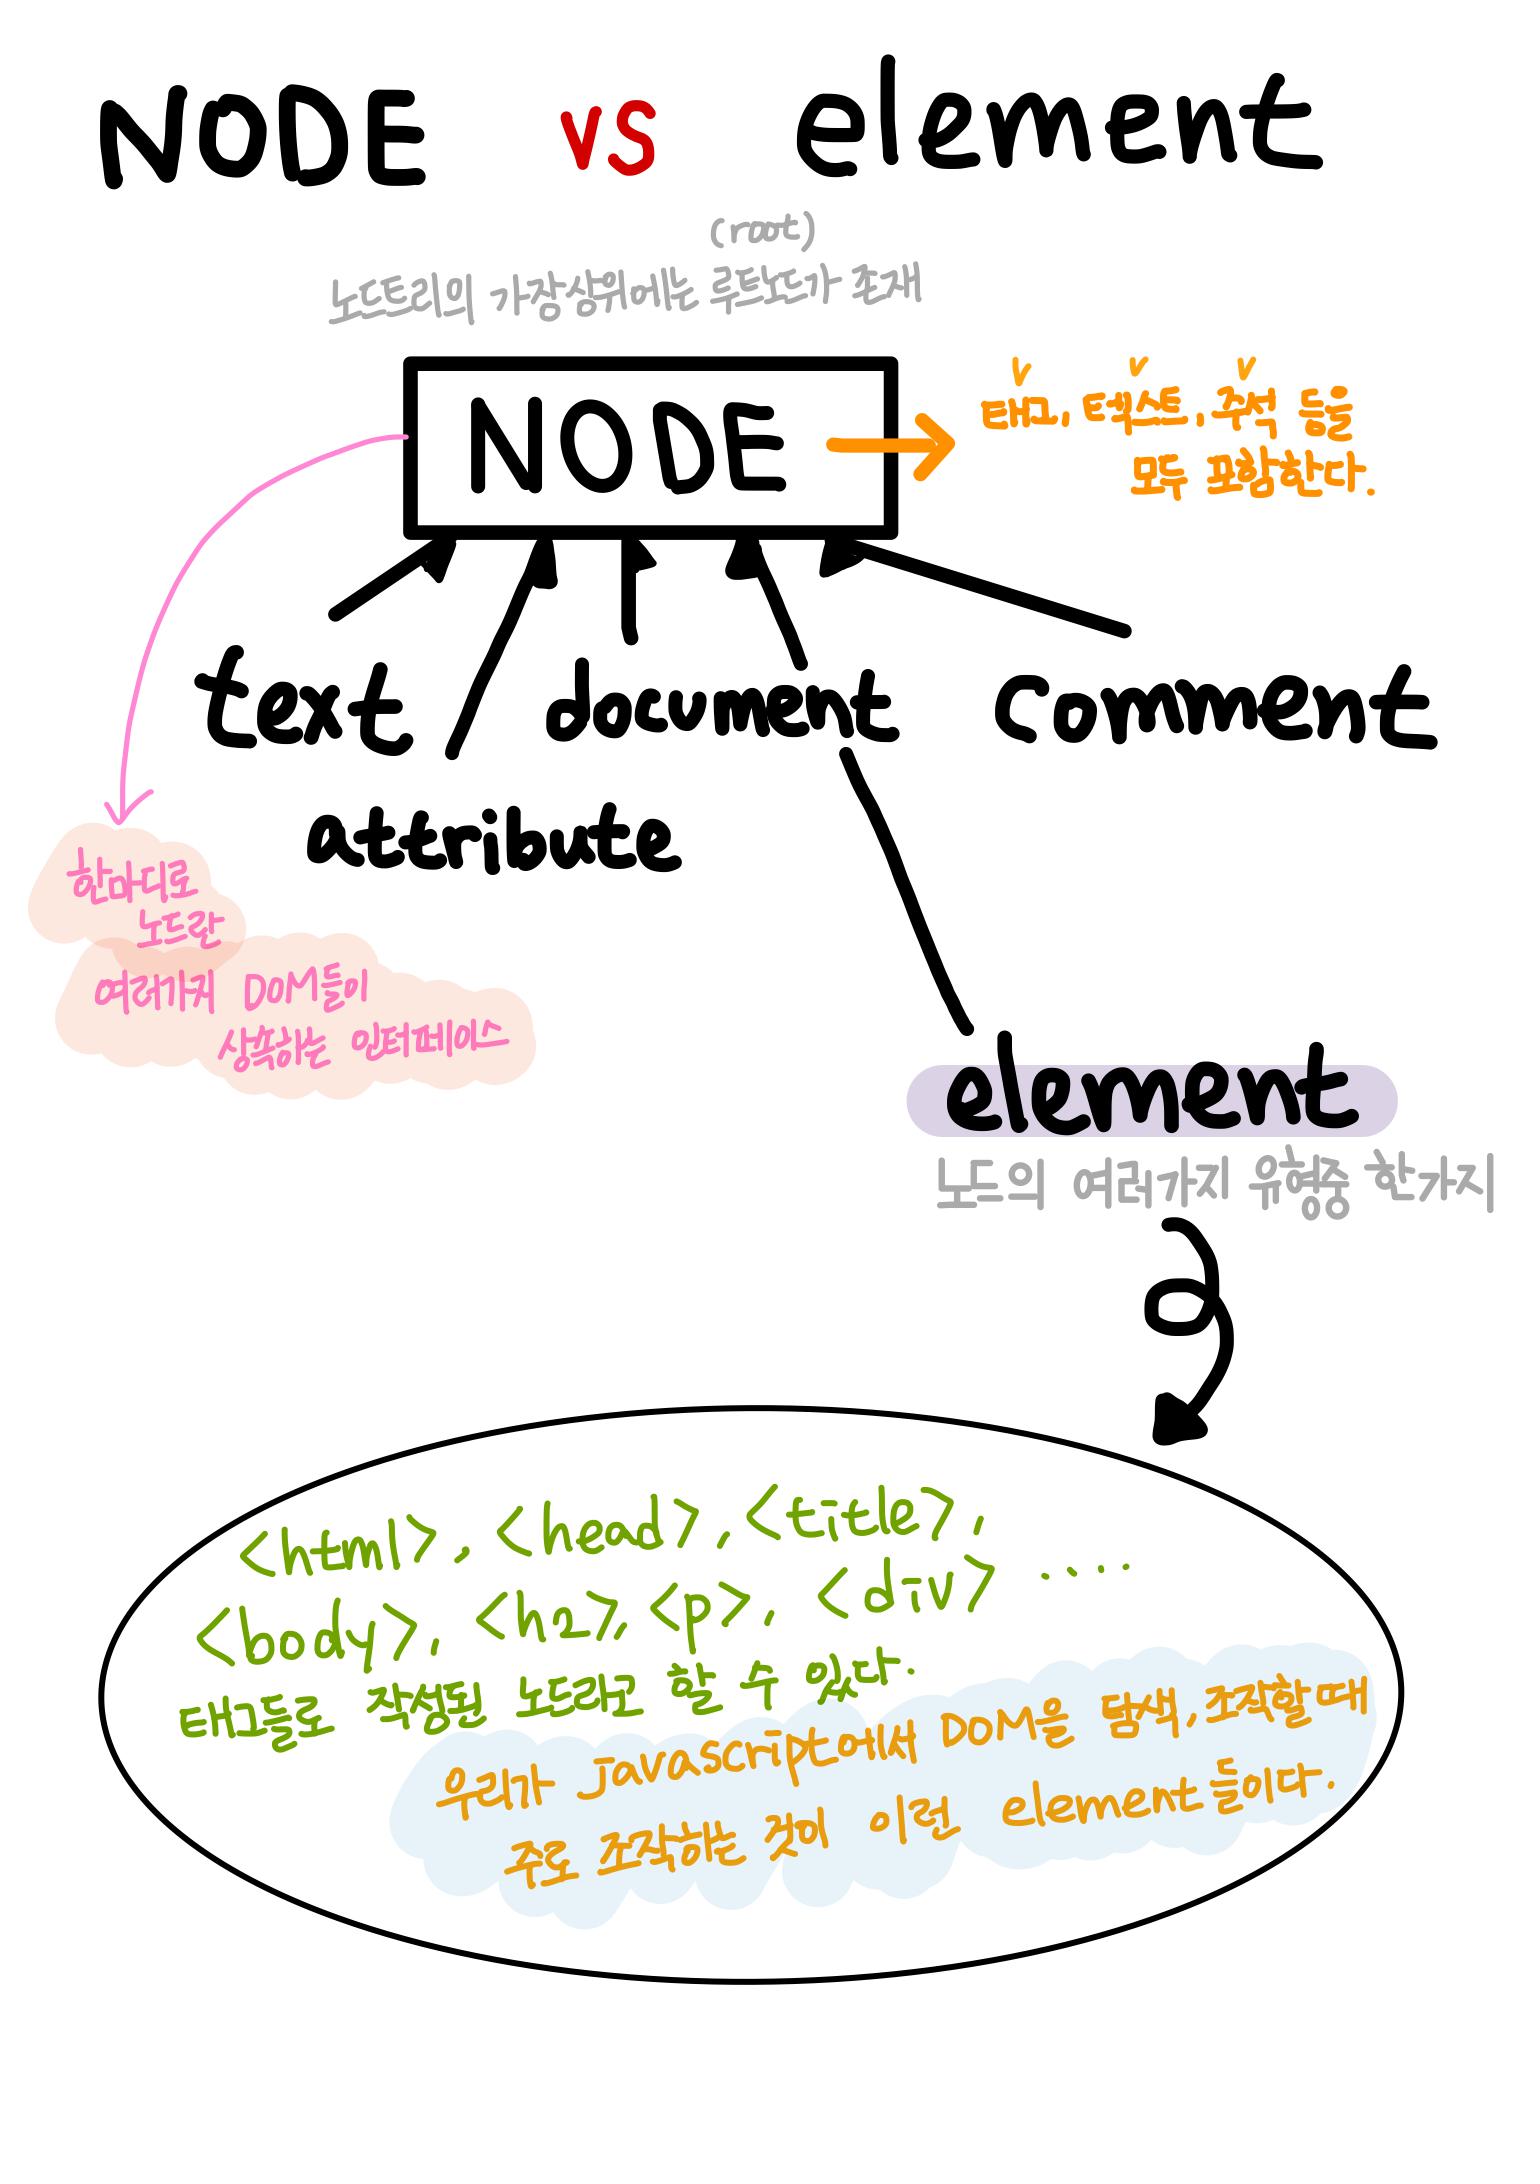 NODE vs element
(root)
노드트리의 가장상위에는 루트노드가 존재
NODE
태그, 텍스트, 주석 등을
모두 포함한다.
text
document
comment
attribute
한마디로
노드란
여러가지 DOM들이
상속하는 인터페이스
element
노드의 여러가지 유형중 한가지
<html>, <head>, <title>,
<body>, <h2>, <p>, <div> ....
태그들로 작성된 노드라고 할 수 있다.
우리가 javascript에서 DOM을 탐색, 조작할때
주로 조작하는 것이 이런 element들이다.